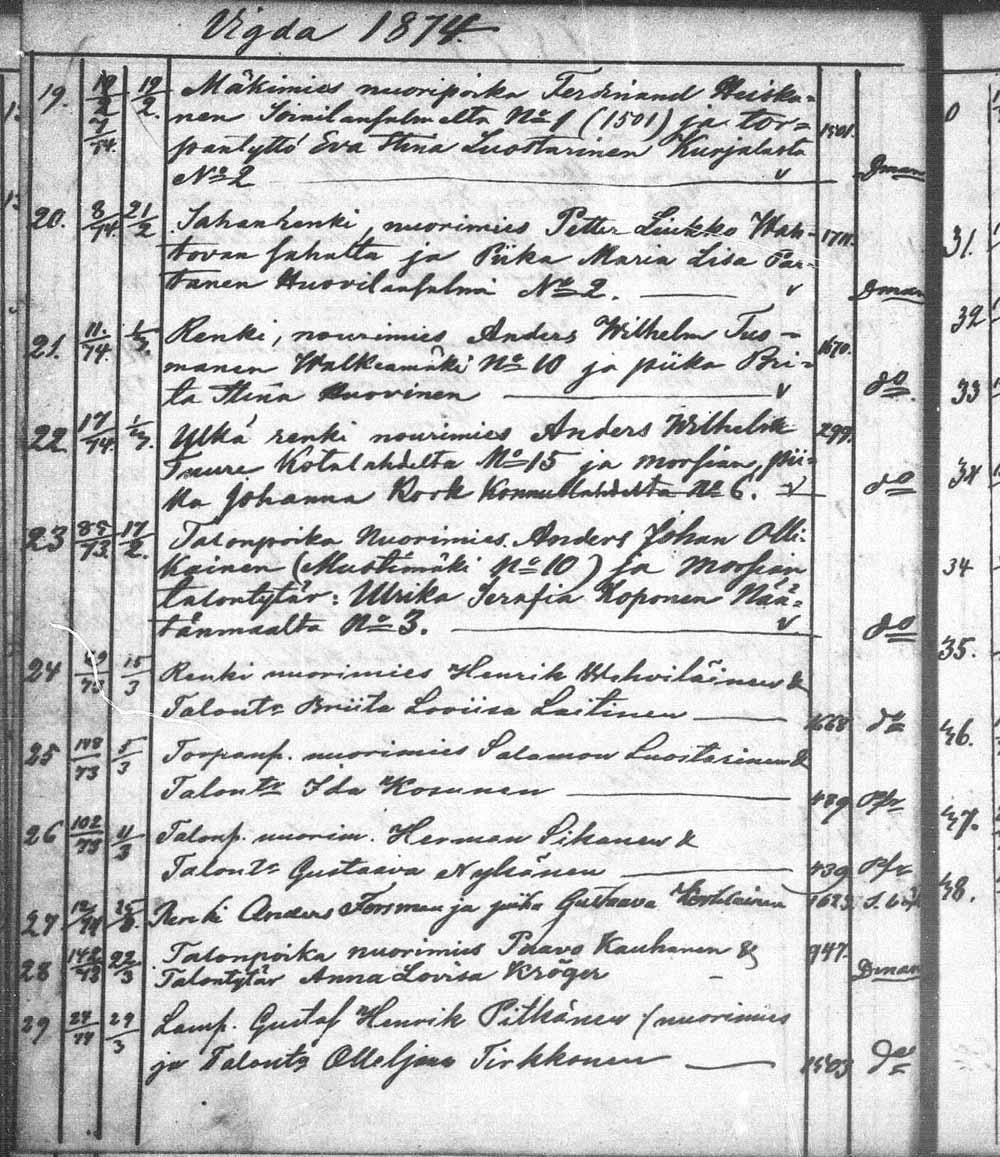 Vigda 1874.
19. 19/2 19/2 Mäkimies nuoripoika Ferdinand Heiska-
7/74. nen Soinilansalmelta No 1 (1501) ja tor- 1501.
pantyttö Eva Stina Luostarinen Kurjalasta
No 2 v Dman
20. 8/74. 21/2 Sahanrenki, nuorimies Petter Liukko Wah- 1711.
tovan sahalta ja Piika Maria Lisa Par-
tanen Huovilansalmi No 2. v Dman
21. 11./74. Renki, nourimies Anders Wilhelm Tus- 1670.
manen Walkeamäki No 10 ja piika Bri-
ta Stina Huovinen v do.
22. 17/74. Ulkä renki nourimies Anders Wilhelm 299.
Tuure Kotalahdelta No 15 ja morsian, pii-
ka Johanna Rook Konnuslahdelta No 6. v do
23 85/73. 17/2. Talonpoika Nuorimies. Anders Johan Olli-
kainen (Mustimäki No 10) ja Morsian
talontytär: Ulrika Serafia Koponen Nää-
tänmaalta No 3. v do
24 15/3 Renki nuorimies Henrik Wehviläinen &
Talontr Briita Loviisa Laitinen 1668 do
25 148/73 5/3 Torpanp. nuorimies Salamon Luostarinen &
Talontr Ida Kosunen 489
26 102/73 11/3 Talonp. nuorim. Herman Pikanen &
Talontr Gustaava Nykänen 439
27 Renki Anders Forsman ja piika Gustaava 1623
28 142/73 22/3 Talonpoika nuorimies Paavo Kauhanen & 947.
Talontytär Anna Lovisa Kröger Dman
29 27/74 29/3 Lamp. Gustaf Henrik Pitkänen (nuorimies
ja Talontr Tirkkonen 1503 do
31.
32
33
34
35.
46.
47.
48.